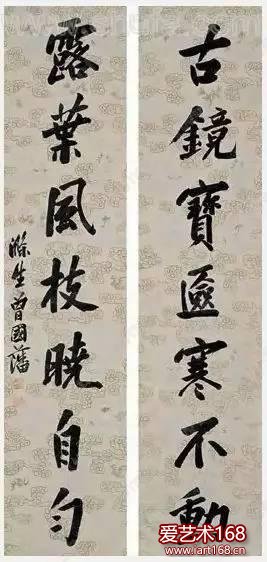 古鏡寶匳寒不動
露葉風枝曉自勻
滌生曾國藩
爱艺术168
www.iart168.cn